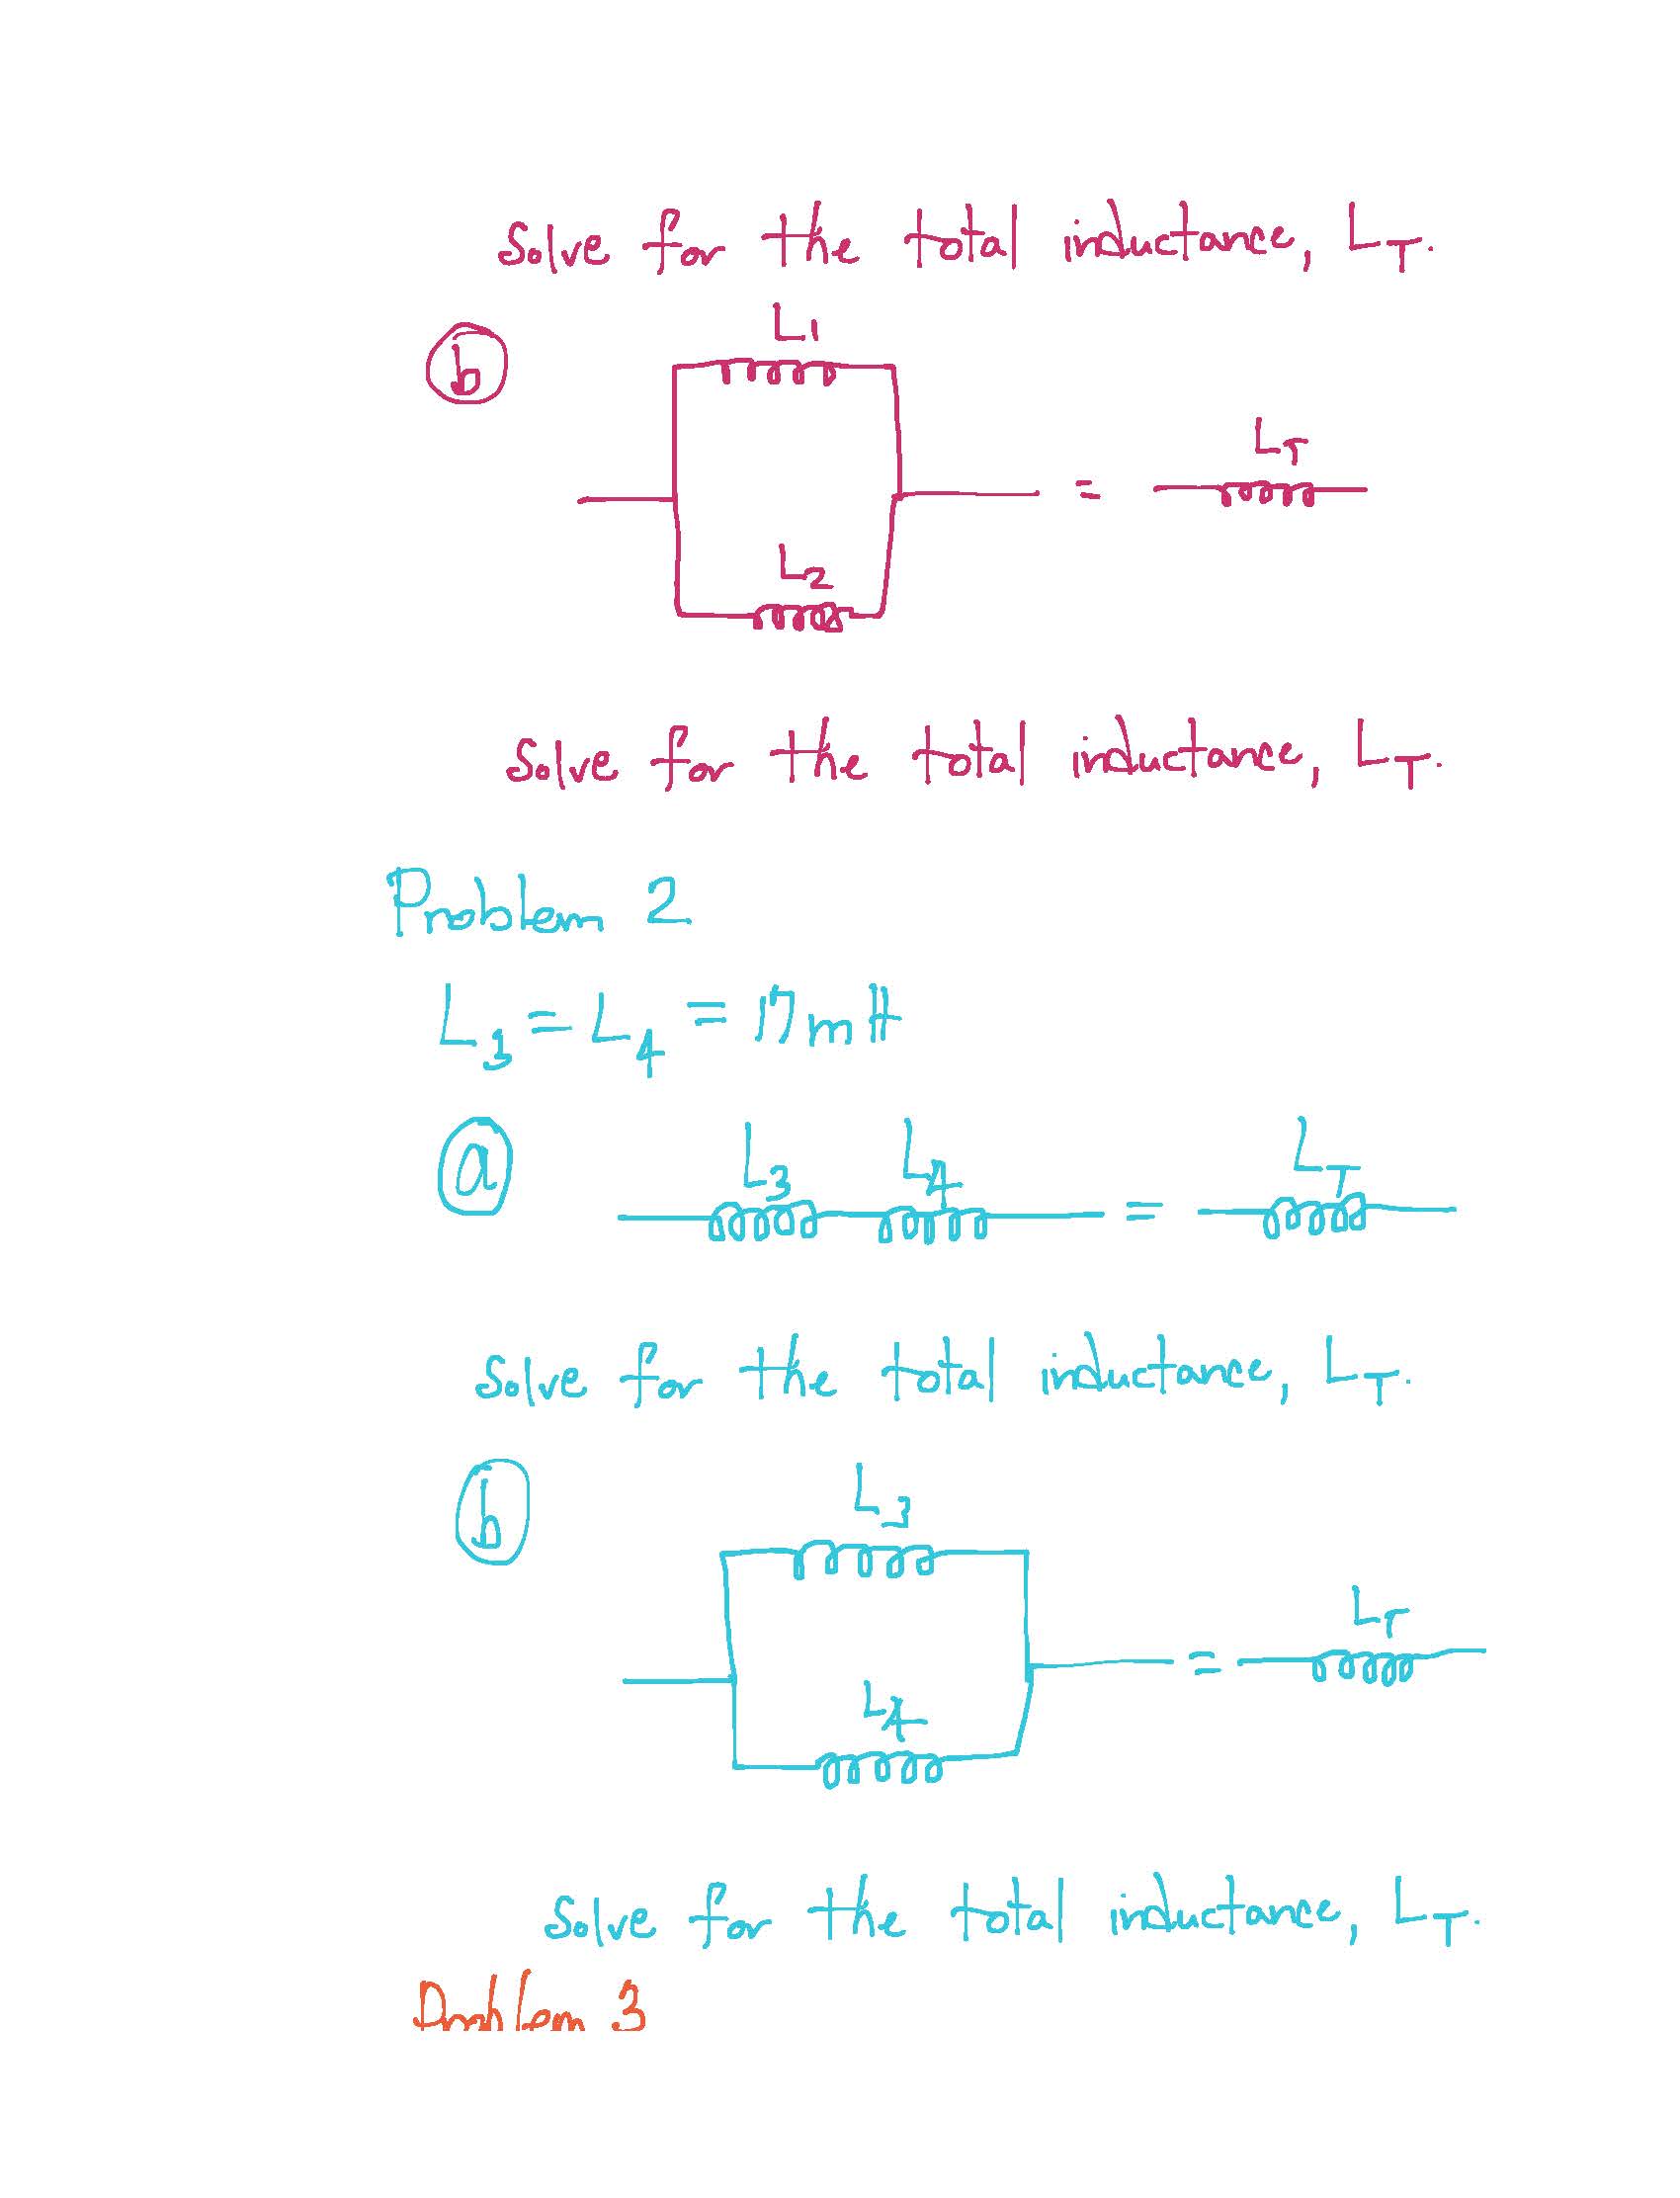 Solve for the total inductance, L_T.
b
L1
L_T
=
L2
Solve for the total inductance, L_T.
Problem 2
L3 = L4 = 17 mH
a
L3 L4 = L_T
Solve for the total inductance, L_T.
b
L3
L_T
=
L4
Solve for the total inductance, L_T.
Problem 3